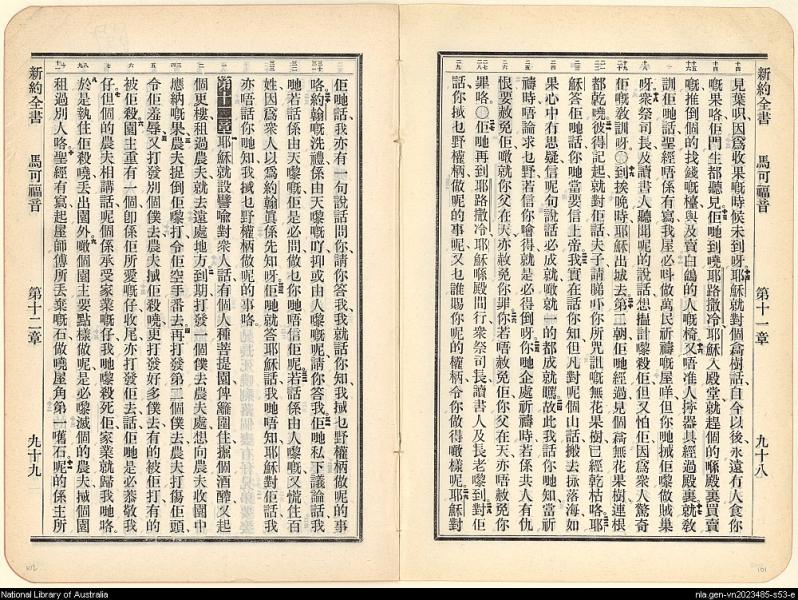 新約全書 馬可福音 第十一章 九十八
見葉唄因爲收果嘅時候未到呀耶穌就對個樹話自今以後永遠有人食你
嘅果咯佢門生都聽見佢哋到嘵耶路撒冷耶穌入殿堂就趕個的喺殿裏買賣
嘅推倒個的找錢嘅檯與及賣白鴿的人嘅椅又唔准人揼器具經過殿裏就敎
訓佢哋話聖經唔係有寫我屋必呌做萬民祈禱嘅屋咩但你哋掝佢嚟做賊巢
呀衆祭司長及讀書人聽聞呢的說話想搵計嚟殺佢但又怕佢因爲衆人驚奇
佢嘅敎訓呀〇到挨晚時耶穌出城去第二朝佢哋經過見個無花果樹連根
都乾嘵彼得記起就對佢話夫子請睇吓你所咒詛嘅無花果樹已經乾枯咯耶
穌答佢哋話你哋當要信上帝我實在話你知但凡對呢個山話搬去揼落海如
果心中有思疑信呢句說話必成就噉就一的都成就囉故此我話你哋知當祈
禱時唔論求乜野若信你噲得就是必得倒呀你哋企處祈禱時若係共人有仇
恨要赦免佢噉就你父在天亦赦免你罪你若唔赦免佢你父在天亦唔赦免你
罪咯〇佢哋再到耶路撒冷耶穌喺殿間行衆祭司長讀書人及長老嚟到對佢
話你掝乜野權柄做呢的事呢又乜誰賜你呢的權柄令你做得噉樣呢耶穌對
新約全書 馬可福音 第十二章 九十九
佢哋話我亦有一句說話問你請你答我我就話你知我掝乜野權柄做呢的事
咯約翰嘅洗禮係由天嚟嘅吖抑或由人嚟嘅呢請你答我佢哋私下議論話我
哋若話係由天嚟嘅佢是必問做乜你哋唔信佢呢若話係由人嚟嘅又慌住百
姓因爲衆人以爲約翰眞係先知呀佢哋就答耶穌話我哋唔知耶穌對佢話我
亦唔話你哋知我掝乜野權柄做呢的事咯
第十二章 耶穌就設譬喻對衆人話有個人種菩提園俾籬圍住掘個酒醡又起
個更樓租過農夫就去遠處地方到期打發一個僕去農夫處想向農夫收園中
應納嘅果農夫捉倒佢嚟打令佢空手番去再打發第二個僕去農夫打傷佢頭
令佢羞辱又打發別個僕去農夫掝佢殺嘵更打發好多僕去有的被佢打有的
被佢殺園主重有一個卽係佢所愛嘅仔收尾亦打發佢去話佢哋是必恭敬我
仔但個的農夫相講話呢個係承受家業嘅仔我哋嚟殺死佢家業就歸我哋咯
於是執住佢殺嘵丢出園外噉個園主要點樣做呢是必嚟滅個的農夫掝個園
租過別人咯聖經有寫起屋師傅所丢棄嘅石做嘵屋角第一嚿石呢的係主所
National Library of Australia
nla.gen-vn2023485-s53-e